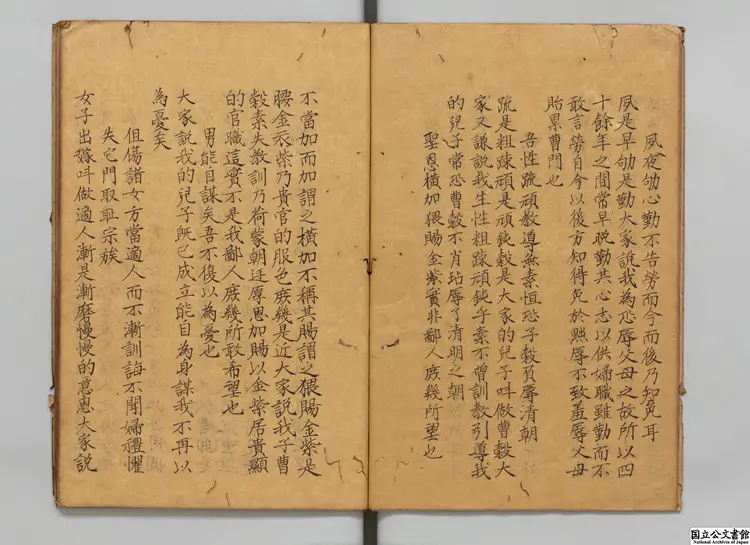 夙夜劬心勤不告勞而今而後乃知免耳
夙是早劬是勤大家說我為恐辱父母之故所以四
十餘年之間常早晚勤其心志以供婦職雖勤而不
敢言勞自今以後方知得免於黜辱不致羞辱父母
貽累曹門也
吾性疏頑教導無素恒恐子穀負辱清朝
疏是粗踈頑是頑鈍穀是大家的兒子叫做曹穀大
家又謙說我生性粗踈頑鈍乎素不曾訓教引導我
的兒子常恐曹穀不肖玷辱了清明之朝
聖恩橫加猥賜金紫實非鄙人庶幾所望也
不當加而加謂之橫加不稱其賜謂之猥賜金紫是
腰金衣紫乃貴官的服色庶幾是近大家說我子曹
穀素失教訓乃荷蒙朝廷厚恩加賜以金紫居貴顯
的官職這實不是我鄙人庶幾所敢希望也
男能自謀矣吾不復以為憂也
大家說我的兒子既已成立能自為身謀我不再以
為憂矣
但傷諸女方當適人而不漸訓誨不聞婦禮懼
失它門取恥宗族
女子出嫁叫做適人漸是漸磨慢慢的意思大家說
国立公文書館
National Archives of Japan